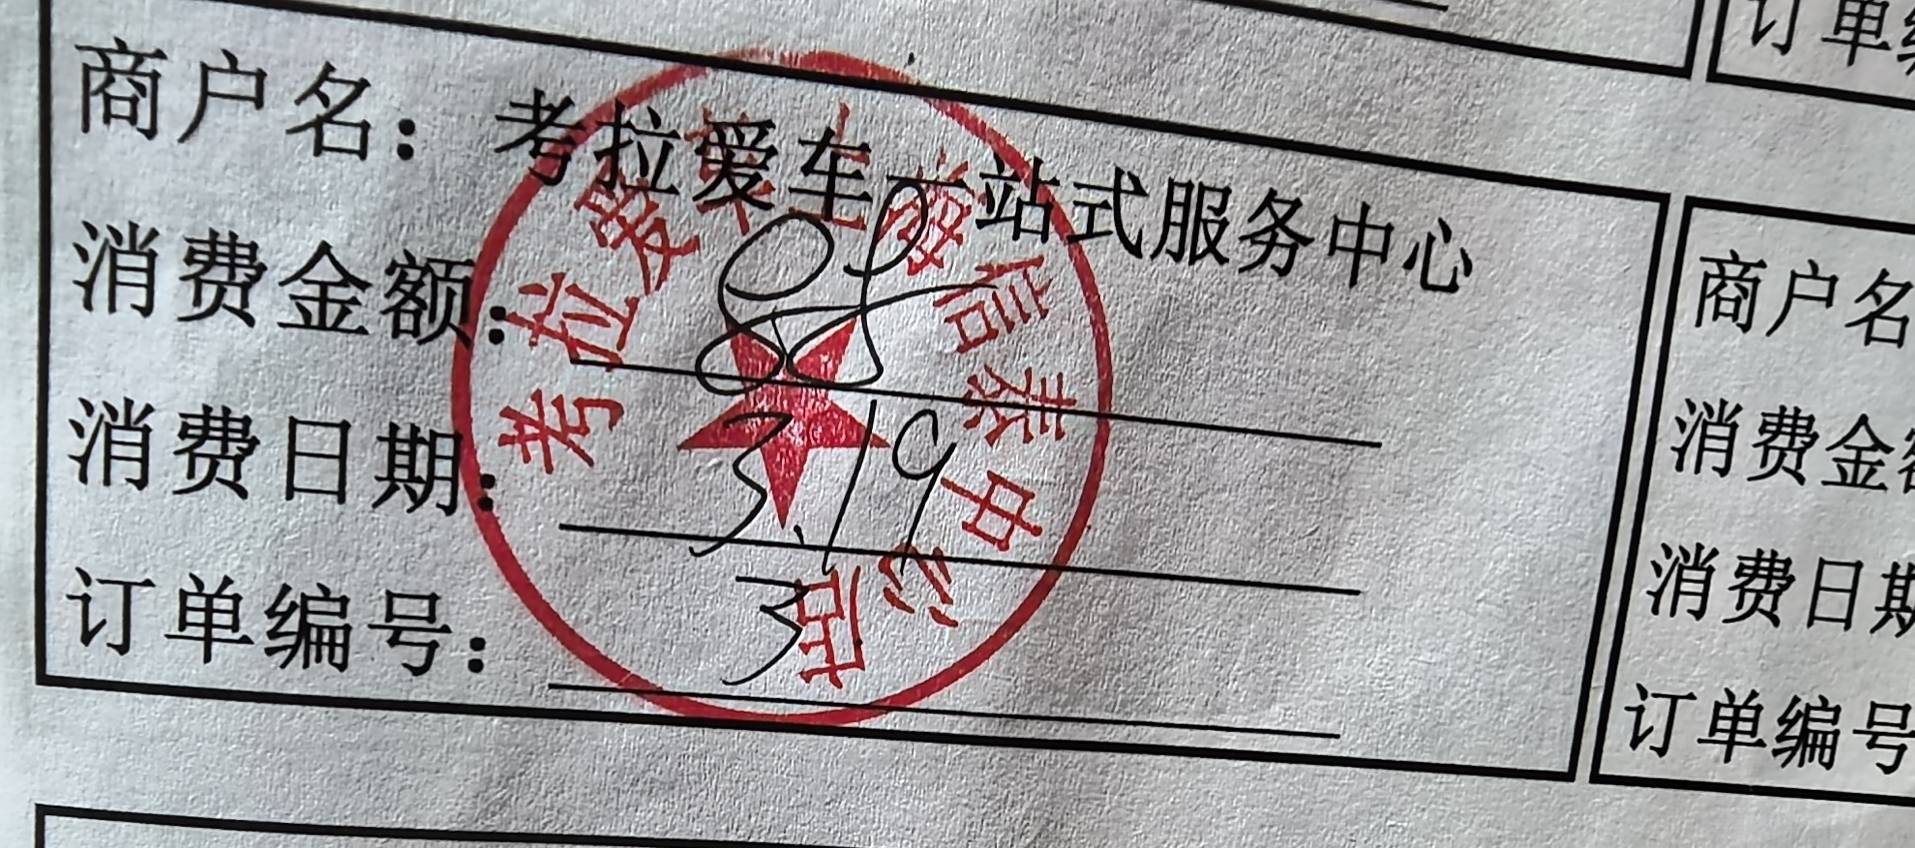 订单编
商户名：考拉爱车一站式服务中心
消费金额：88
消费日期：3.19
订单编号：3
考拉爱车
信泰中
店
商户名
消费金额
消费日期
订单编号